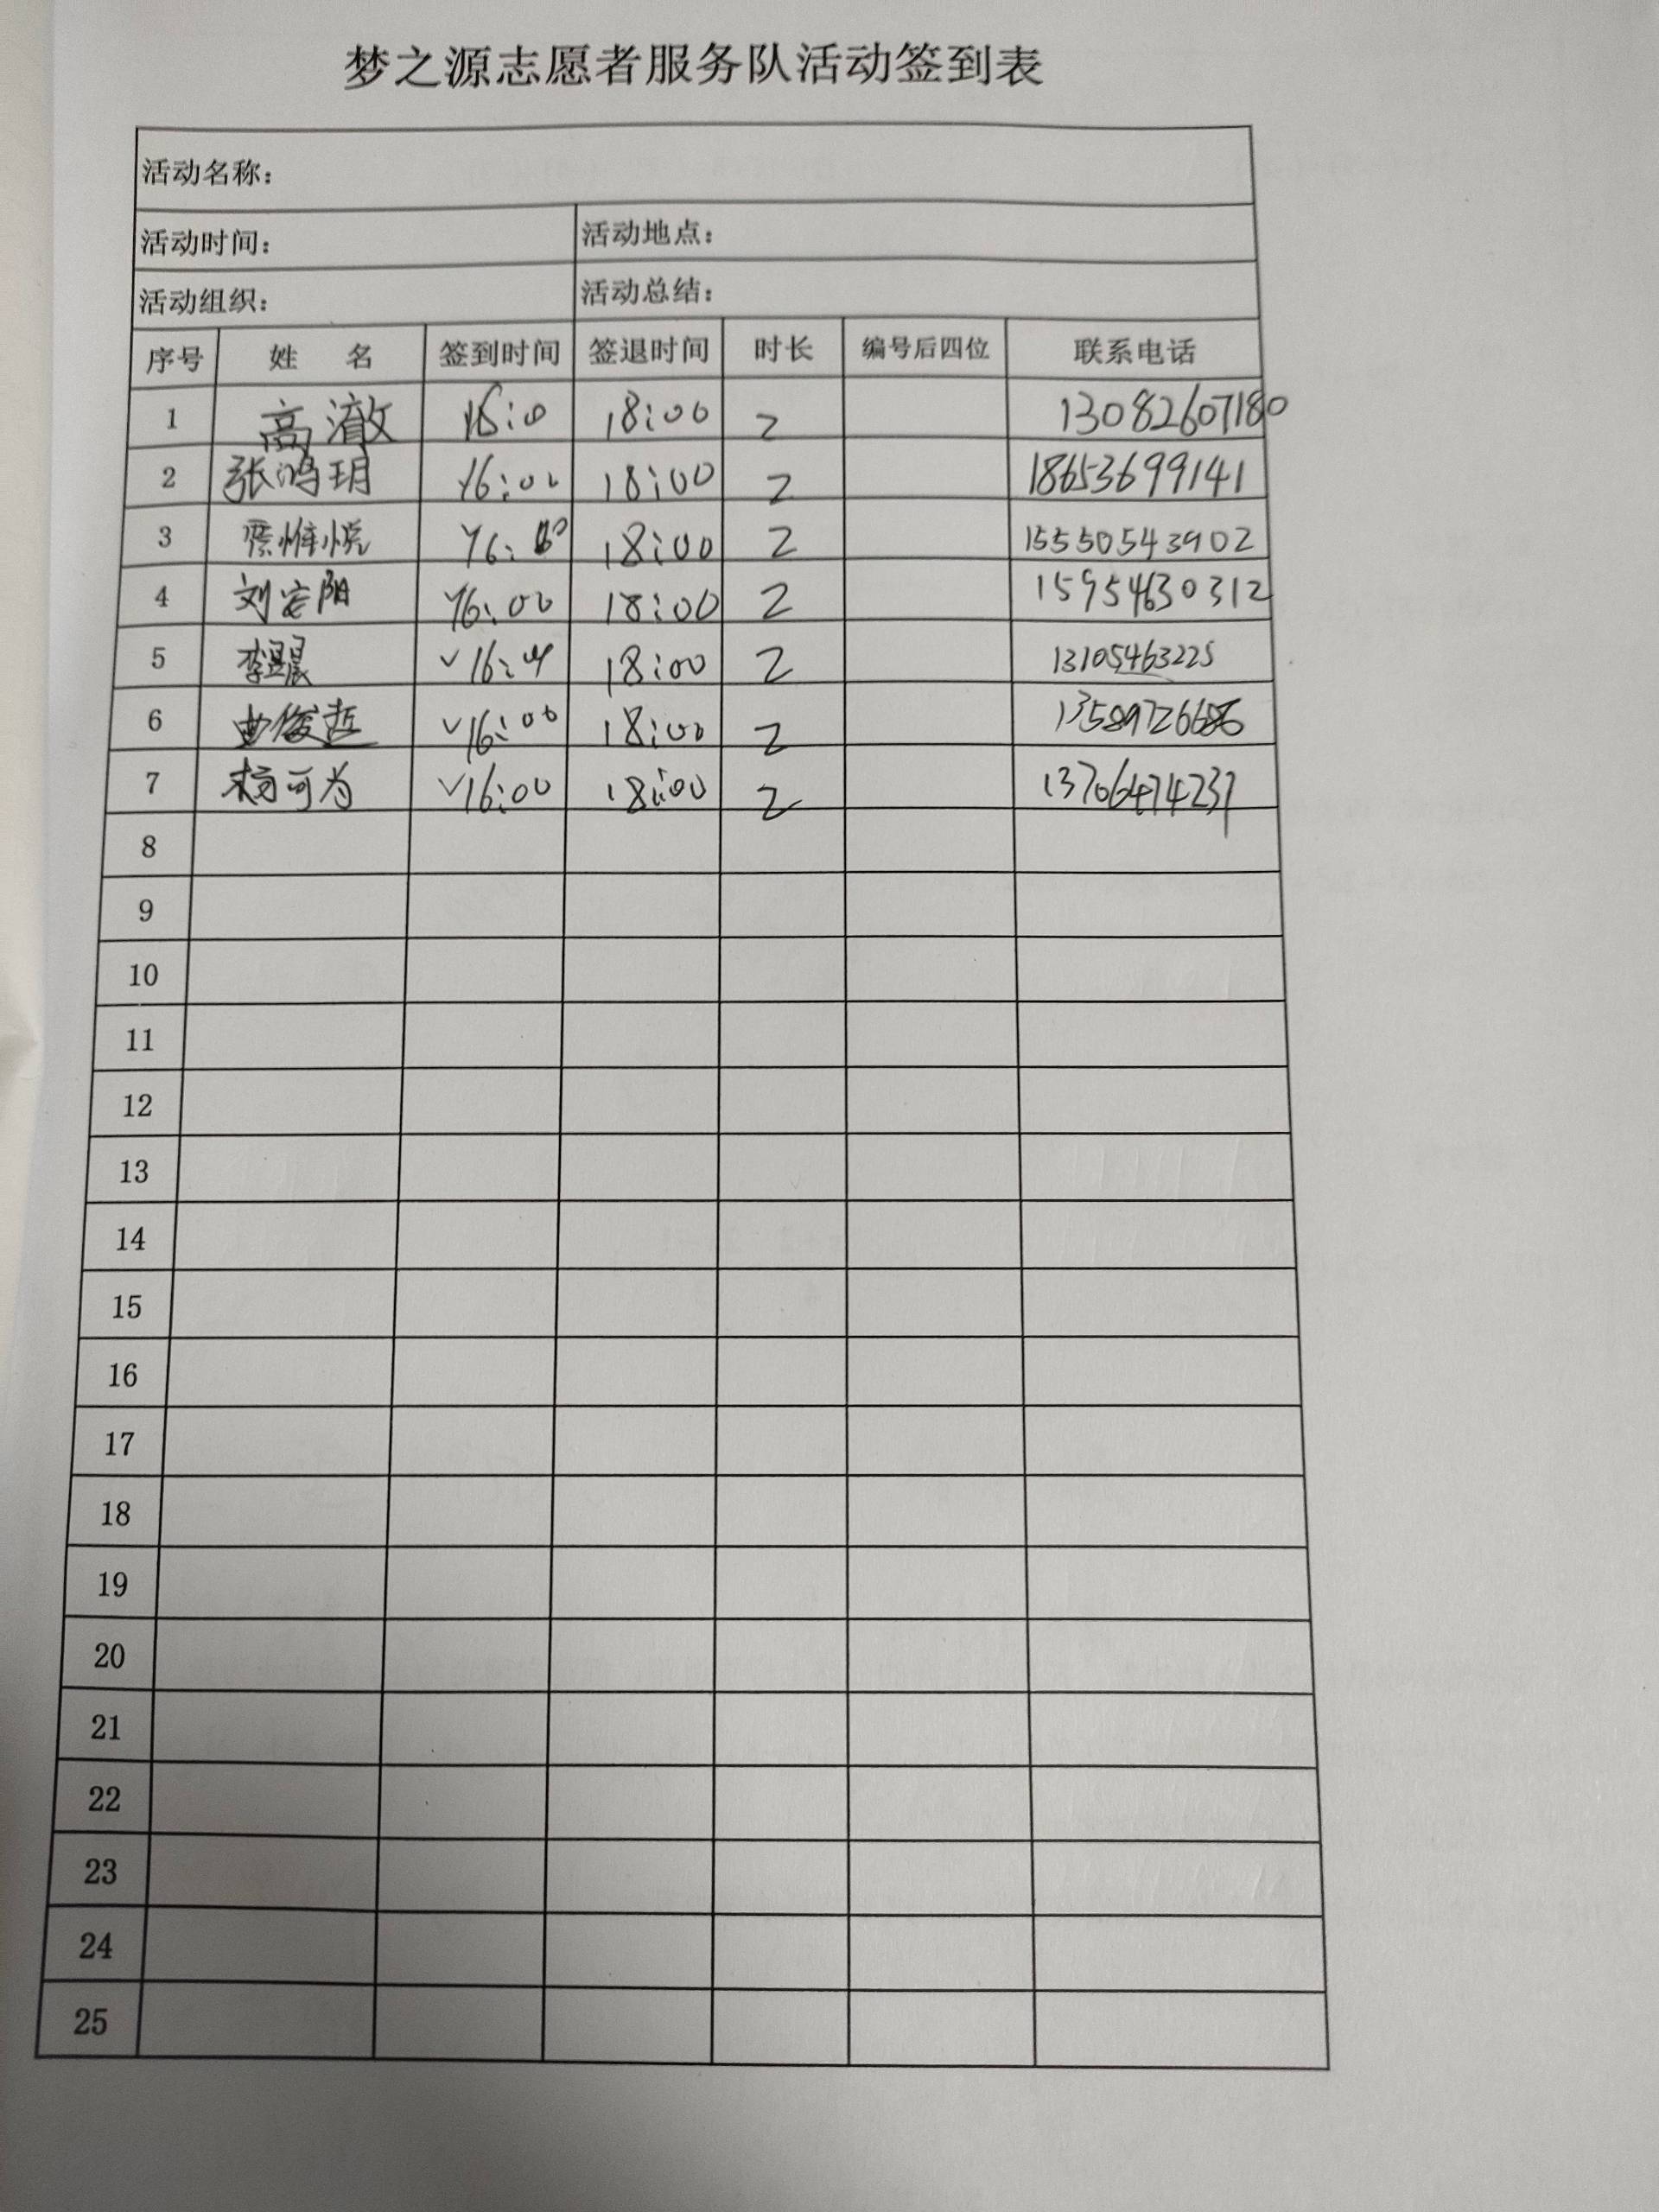 梦之源志愿者服务队活动签到表
活动名称：
活动时间： 活动地点：
活动组织： 活动总结：
序号 姓 名 签到时间 签退时间 时长 编号后四位 联系电话
1 高澈 18:00 2 13082607180
2 张鸿玥 16:00 18:00 2 18653699141
3 16:00 18:00 2 15550543902
4 刘宏阳 16:00 18:00 2 15954630312
5 李昱晨 √16: 18:00 2 13105463225
6 曲俊哲 √16:00 18:00 2
7 杨可为 √16:00 18:00 2
8
9
10
11
12
13
14
15
16
17
18
19
20
21
22
23
24
25